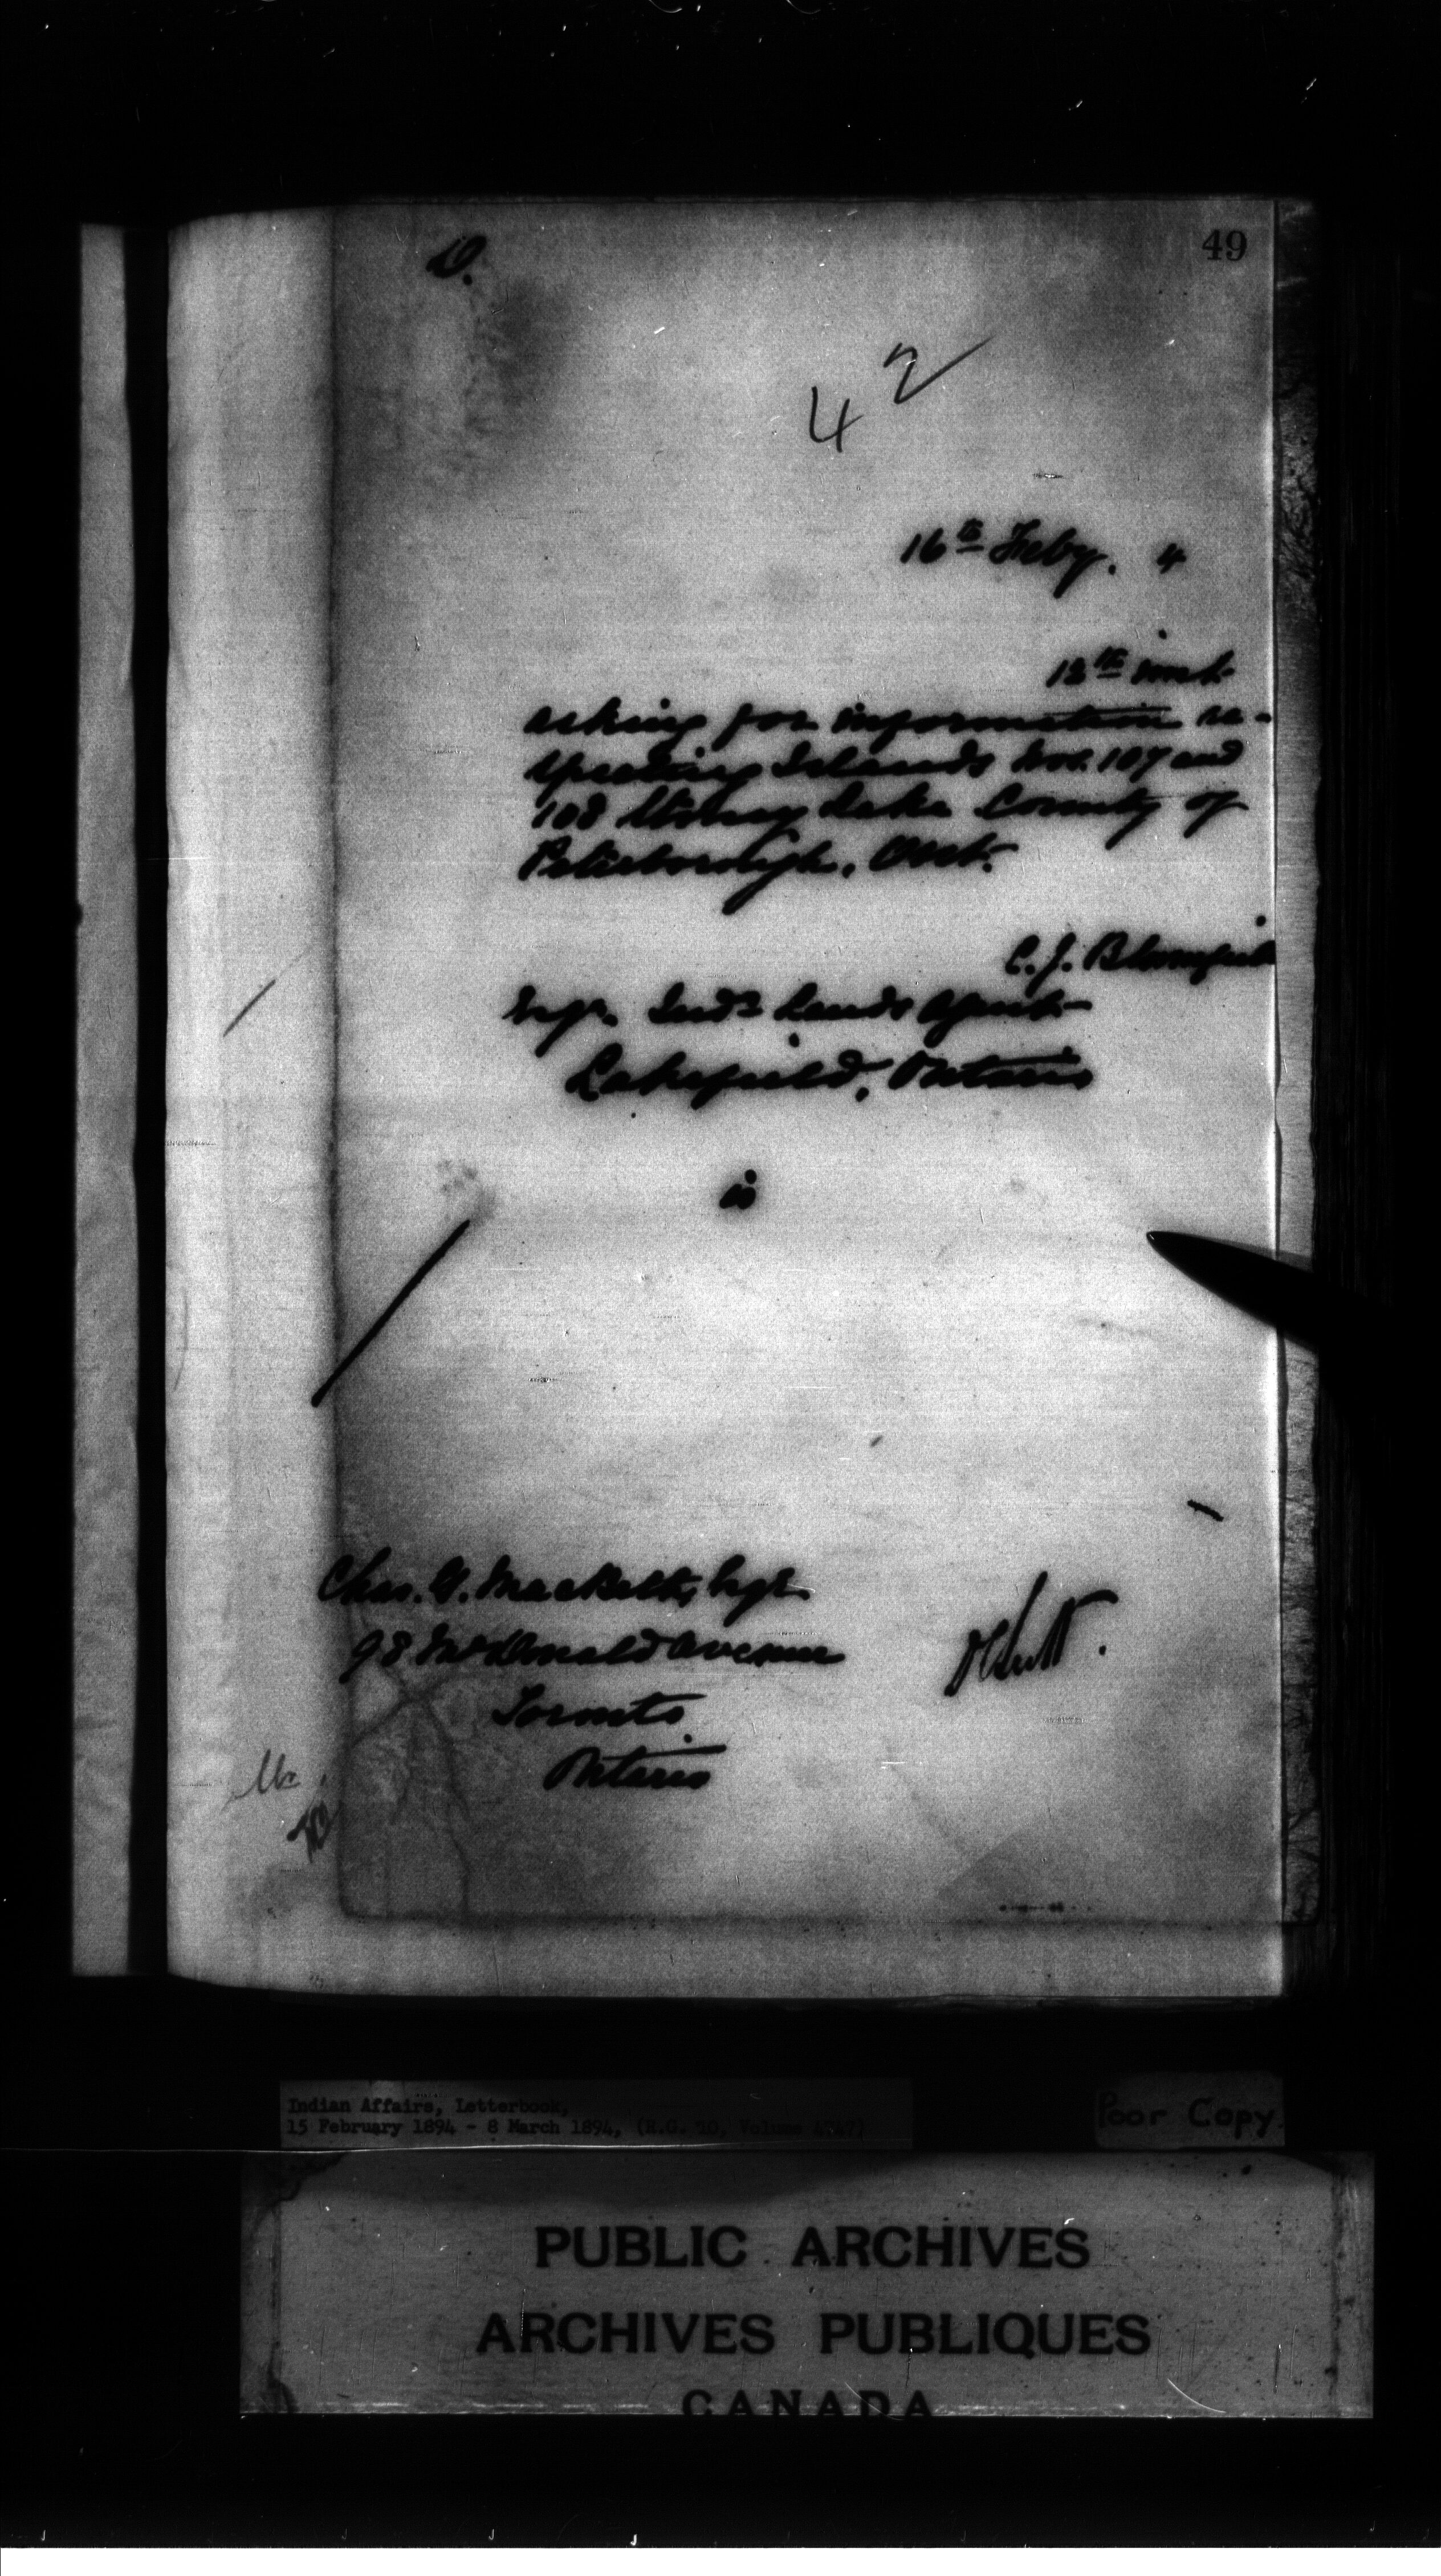 D.
49
42
16th Feby. 4
12th inst.
asking for information re-
specting Islands Nos. 107 and
108 Stoney Lake County of
Peterborough, Ont.
C. J. Blomfield
Esqr. Indn Lands Agent
Lakefield, Ontario
is
Chas. G. Esqr.
98 McDonald Avenue
Toronto
Ontario
Indian Affairs, Letterbook,
15 February 1894 - 8 March 1894, (R.G. 10, Volume
Poor Copy.
PUBLIC ARCHIVES
ARCHIVES PUBLIQUES
CANADA